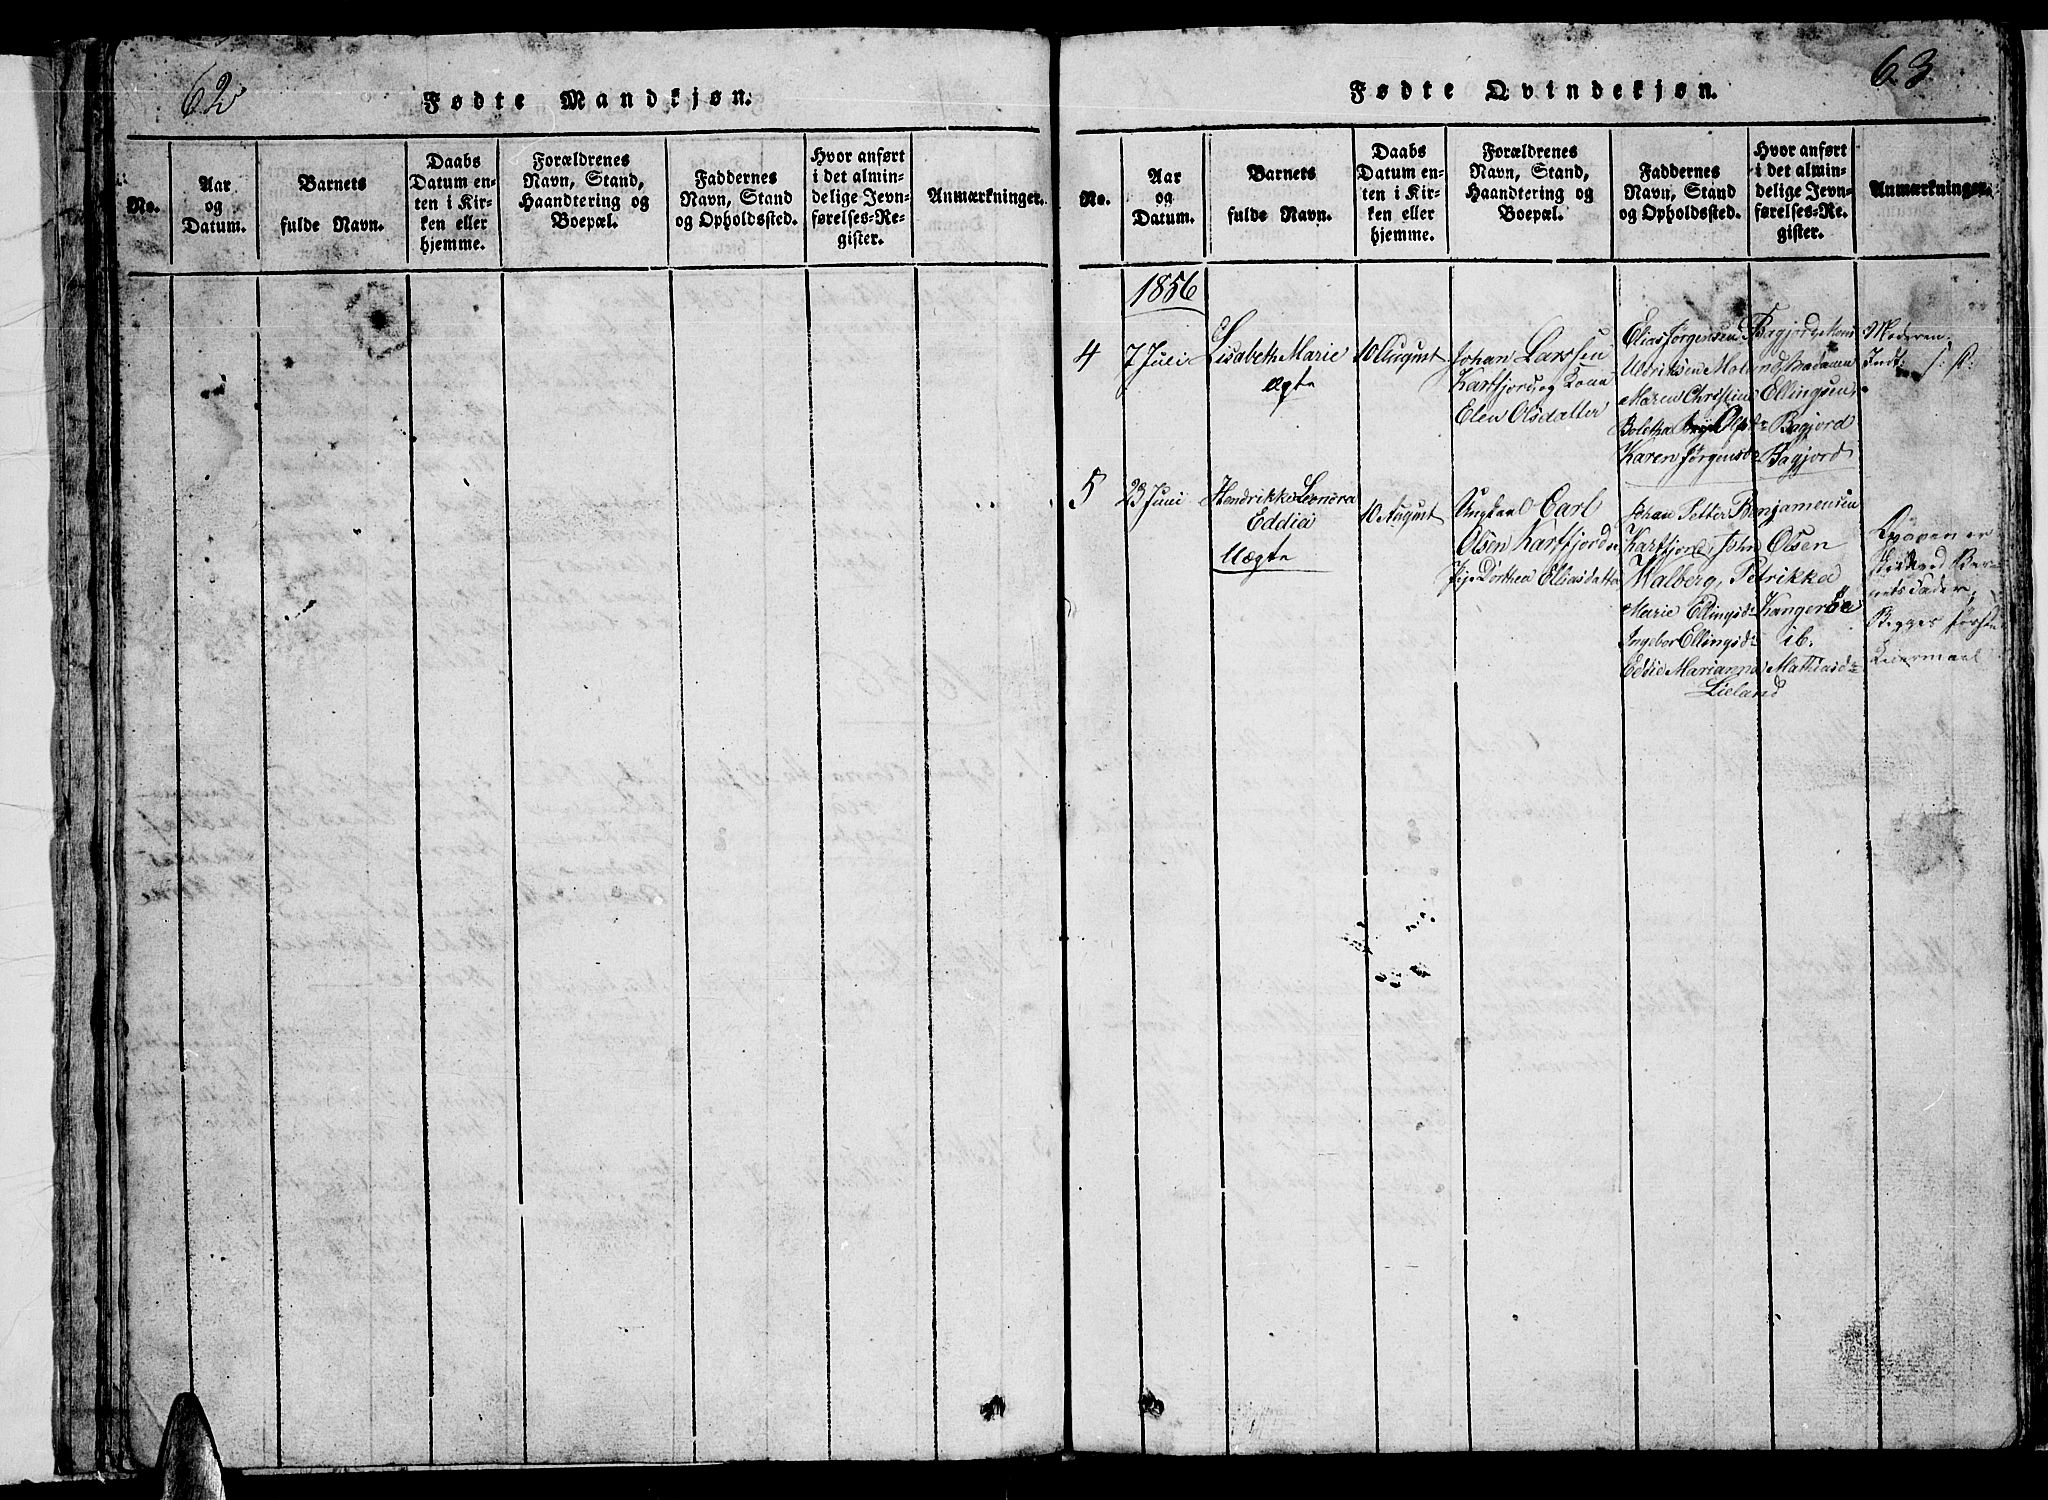 62
Fødte Mandkjøn.
No.
Aar
og
Datum.
Barnets
fulde Navn.
Daabs
Datum en-
ten i Kir-
ken eller
hjemme.
Forældrenes
Navn, Stand,
Haandtering og
Boepæl.
Faddernes
Navn, Stand
og Opholdssted.
Hvor anført
i det almin-
delige Jevn-
førelses-Re-
gister.
Anmærkninger.
63
Fødte Qvindekjøn.
No.
Aar
og
Datum.
Barnets
fulde Navn.
Daabs
Datum en-
ten i Kir-
ken eller
hjemme.
Forældrenes
Navn, Stand,
Haandtering og
Boepæl.
Faddernes
Navn, Stand
og Opholdssted.
Hvor anført
i det almin-
delige Jevn-
førelses-Re-
gister.
Anmærkninger.
1856
4
7 Juli
Lisabeth Marie
Ægte
10 August
Johan Larssen
Karffjord og Kone
Elen Olsdatter
Elias Jørgensen Bagjord, Mons
Uldriksen Moland, Madamen
Maren Christin Ellingsen,
Boletha Olsdr Bagjord
Karen Jørgensdr Bagjord
Moderen
Indt:
5
23 Juni
Hendrikke Leonora
Eddia
Uægte
10 August
Ungkarl Carl
Olsen Karffjord og
Pije Dorthea Eliasdatter
Johan Petter Benjamensen
Karffjord, John Olsen
Malberg, Petrikka
Marie Ellingsdr Kangerøe
Ingebor Ellingsdr ib.
Eddie Marianna Mathiasdr
Lieland
Opgiven er
Bar-
nets Fader,
Begges første
Leiermaal